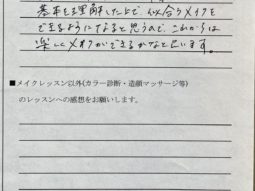 基本を理解した上で、似合うメイクを
できるようになると思うので、これからは
楽しくメイクができるかなと思います。
■メイクレッスン以外(カラー診断・造顔マッサージ等)
のレッスンへの感想をお願いします。